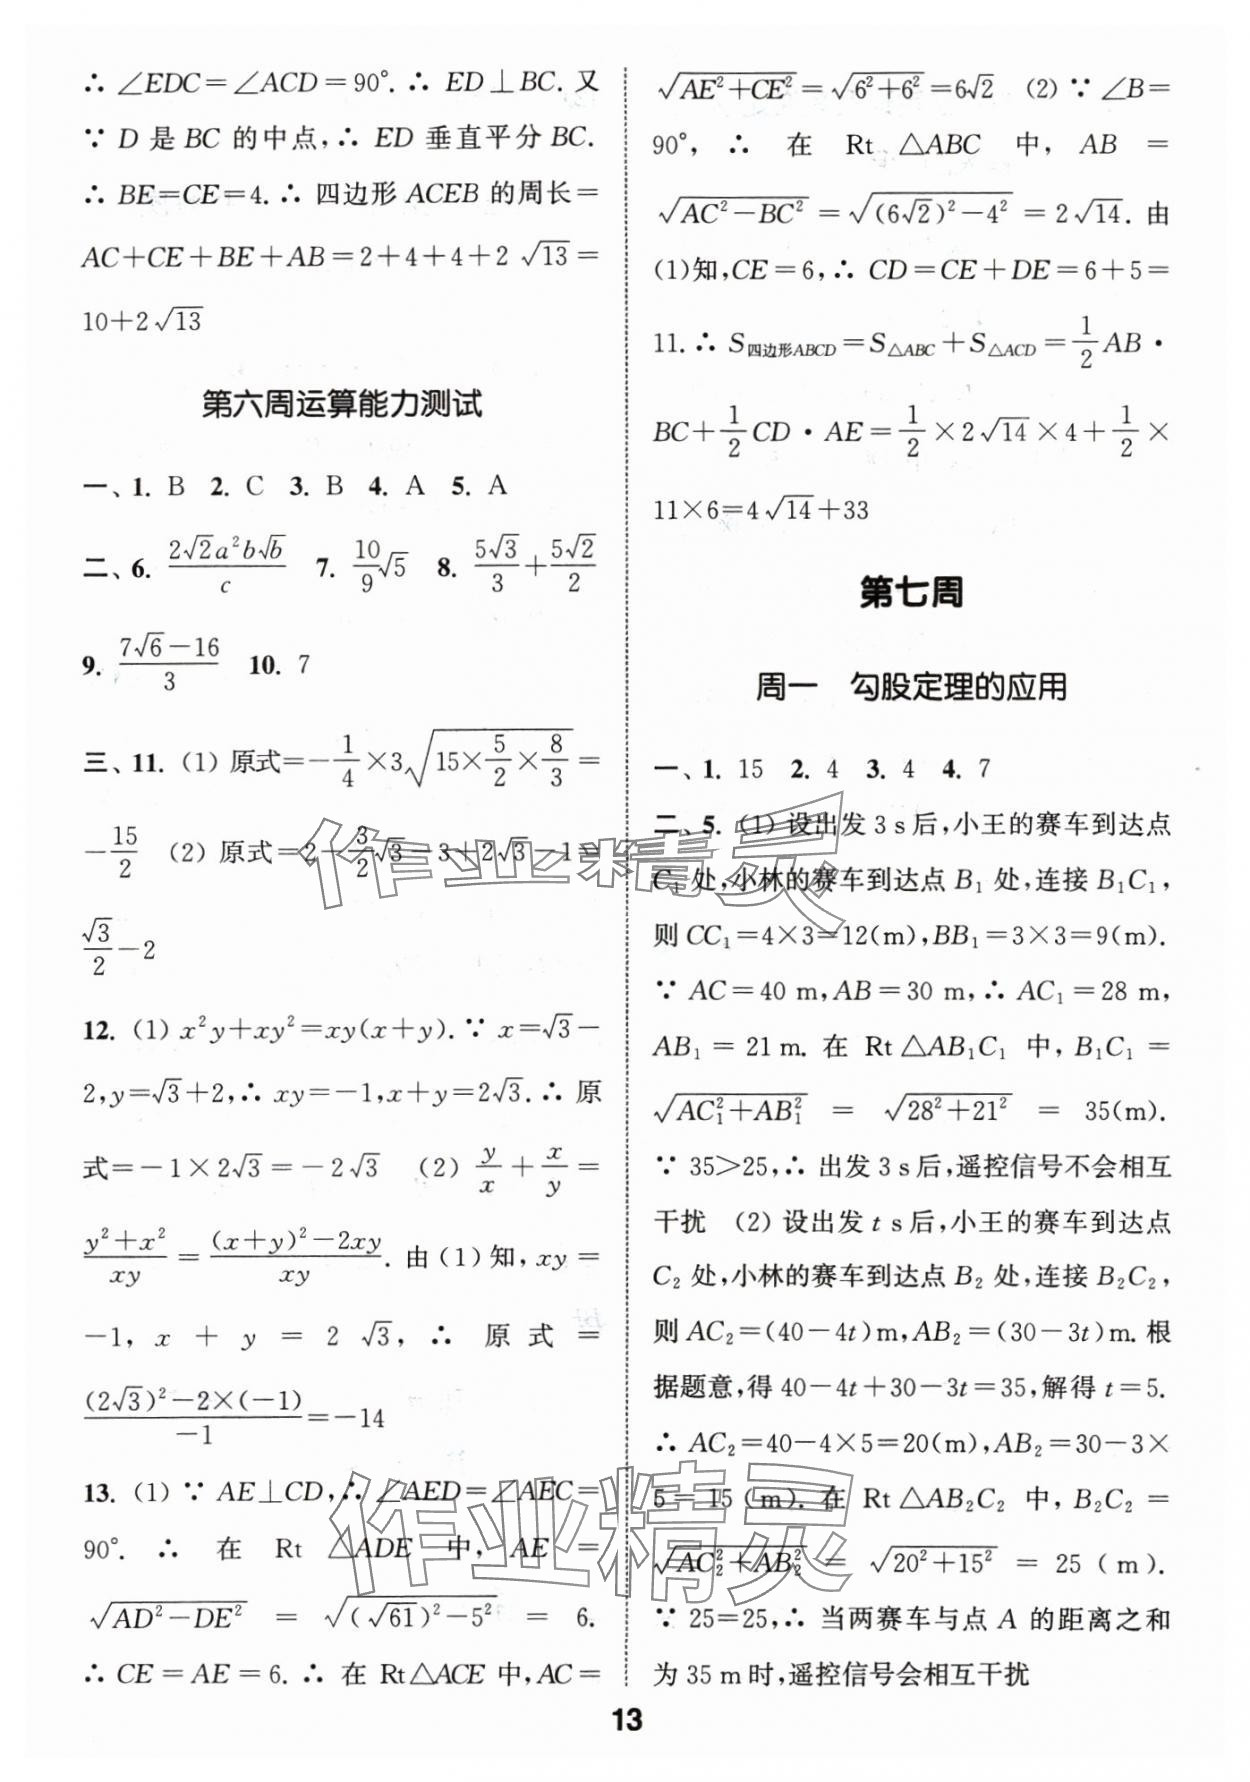 ∴ ∠EDC=∠ACD=90°.∴ ED⊥BC.又
∵ D 是 BC 的中点,∴ ED 垂直平分 BC.
∴ BE=CE=4.∴ 四边形 ACEB 的周长=
AC+CE+BE+AB=2+4+4+2√13=
10+2√13
第六周运算能力测试
一、1. B 2. C 3. B 4. A 5. A
二、6. 2√2a²b√b/c 7. 10/9√5 8. 5√3/3+5√2/2
9. (7√6-16)/3 10. 7
三、11. (1) 原式=-1/4×3√(15×5/2×8/3)=
-15/2 (2) 原式=2-3/2√3-3+2√3-1=
√3/2-2
12. (1) x²y+xy²=xy(x+y).∵ x=√3-
2,y=√3+2,∴ xy=-1,x+y=2√3.∴ 原
式=-1×2√3=-2√3 (2) y/x+x/y=
(y²+x²)/xy=((x+y)²-2xy)/xy. 由(1)知,xy=
-1, x+y=2√3, ∴ 原式=
((2√3)²-2×(-1))/-1=-14
13. (1) ∵ AE⊥CD,∴ ∠AED=∠AEC=
90°. ∴ 在 Rt △ADE 中, AE =
√(AD²-DE²) = √((√61)²-5²) = 6.
∴ CE=AE=6.∴ 在 Rt△ACE 中,AC=
√(AE²+CE²)=√(6²+6²)=6√2 (2) ∵ ∠B=
90°, ∴ 在 Rt △ABC 中, AB =
√(AC²-BC²)=√((6√2)²-4²)=2√14. 由
(1)知,CE=6,∴ CD=CE+DE=6+5=
11.∴ S四边形ABCD=S△ABC+S△ACD=1/2AB·
BC+1/2CD·AE=1/2×2√14×4+1/2×
11×6=4√14+33
第七周
周一 勾股定理的应用
一、1. 15 2. 4 3. 4 4. 7
二、5. (1) 设出发 3 s 后,小王的赛车到达点
C₁ 处,小林的赛车到达点 B₁ 处,连接 B₁C₁,
则 CC₁=4×3=12(m),BB₁=3×3=9(m).
∵ AC=40 m,AB=30 m,∴ AC₁=28 m,
AB₁=21 m. 在 Rt△AB₁C₁ 中,B₁C₁=
√(AC₁²+AB₁²) = √(28²+21²) = 35(m).
∵ 35>25,∴ 出发 3 s 后,遥控信号不会相互
干扰 (2) 设出发 t s 后,小王的赛车到达点
C₂ 处,小林的赛车到达点 B₂ 处,连接 B₂C₂,
则 AC₂=(40-4t)m,AB₂=(30-3t)m. 根
据题意,得 40-4t+30-3t=35,解得 t=5.
∴ AC₂=40-4×5=20(m),AB₂=30-3×
5=15(m). 在 Rt△AB₂C₂ 中,B₂C₂=
√(AC₂²+AB₂²) = √(20²+15²) = 25(m).
∵ 25=25,∴ 当两赛车与点 A 的距离之和
为 35 m 时,遥控信号会相互干扰
作业精灵
作业精灵
13